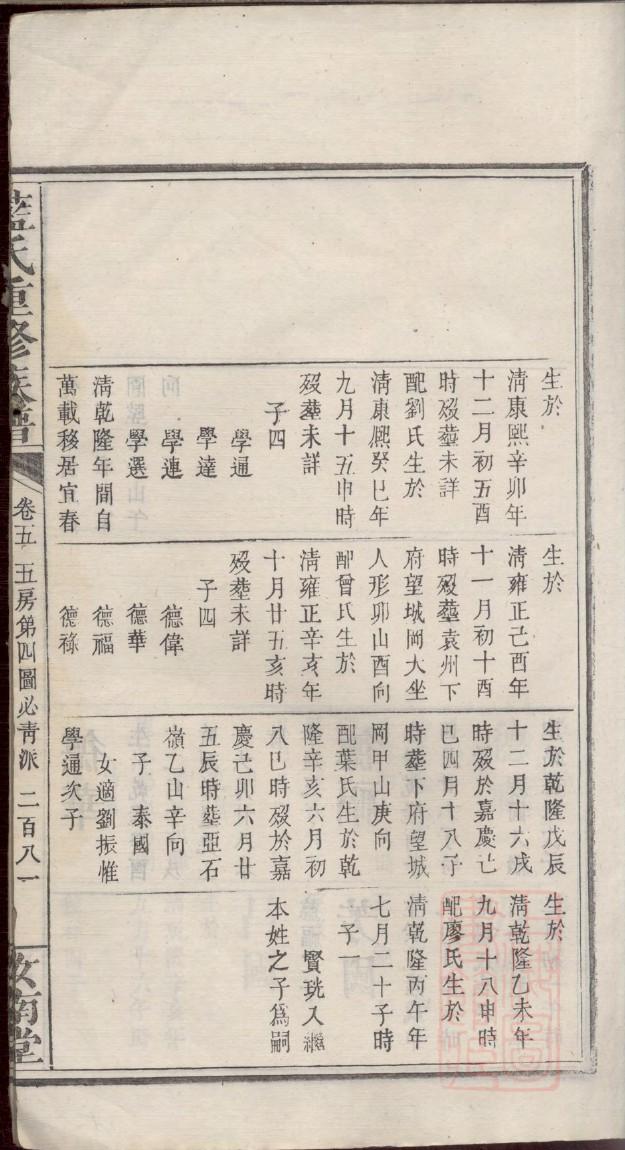 生於
清康熙辛卯年
十二月初五酉
時歿塟未詳
配劉氏生於
清康熙癸巳年
九月十五申時
歿塟未詳
子四
學通
學達
學連
學選
清乾隆年間自
萬載移居宜春
生於
清雍正己酉年
十一月初十酉
時歿塟袁州下
府望城岡大坐
人形卯山酉向
配曾氏生於
清雍正辛亥年
十月廿五亥時
歿塟未詳
子四
德偉
德華
德福
德祿
生於乾隆戊辰
十二月十六戌
時歿於嘉慶己
巳四月十八子
時塟下府望城
岡甲山庚向
配葉氏生於乾
隆辛亥六月初
八巳時歿於嘉
慶己卯六月廿
五辰時塟亞石
嶺乙山辛向
子 泰國
女適劉振惟
學通次子
生於
清乾隆乙未年
九月十八申時
配廖氏生於
清乾隆丙午年
七月二十子時
子一
賢珖入繼
本姓之子爲嗣
藍氏重修族譜
卷五 五房第四圖必靑派 二百八一
汝南堂